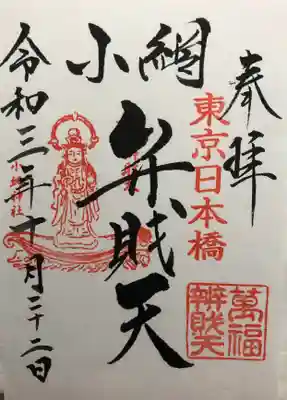 奉拝
東京日本橋
小網
弁財天
小網神社
令和三年十月二十二日
萬福
辨財天